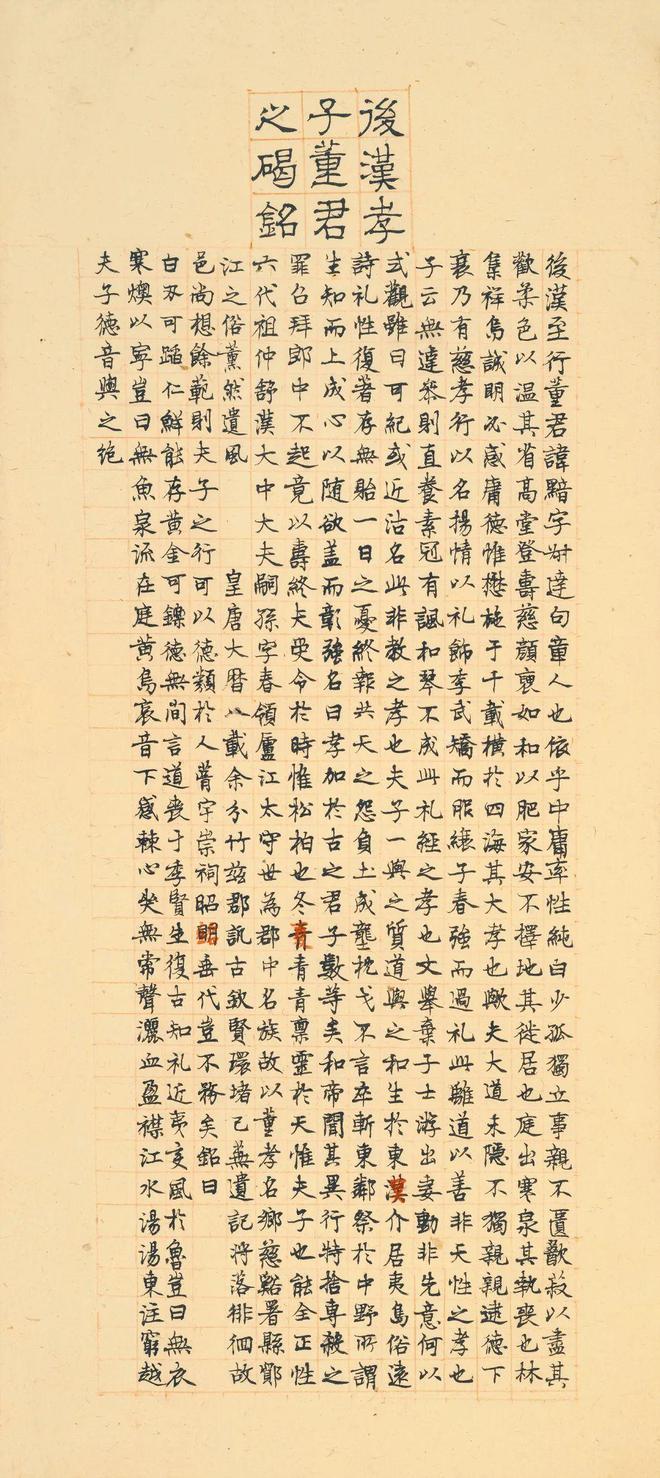 後漢孝
子董君
之碣銘
後漢至行董君諱黯字叔達句章人也依乎中庸率性純白少孤獨立事親不匱歠菽以盡其
歡柔色以温其省髙堂登壽慈顏裏如和以肥家安不擇地其徙居也庭出寒泉其執喪也林
集祥鳥誠明必感庸德惟懋施于千載橫於四海其大孝也歟夫大道未隱不獨親親逮德下
衰乃有慈孝行以名揚情以礼飾季武矯而服縗子春強而過礼此雖道以善非天性之孝也
子云無違參則直養素冠有諷和琴不成此礼經之孝也文舉棄子士游出妻動非先意何以
式觀雖曰可紀或近沽名此非教之孝也夫子一與之質道與之和生於東漢介居夷島俗遠
詩礼性復著存無貽一日之憂終報共天之怨負土成壟枕戈不言卒斬東鄰祭於中野所謂
生知而上成心以随欲盖而彰強名曰孝加於古之君子數等矣和帝聞其異行特捨專殺之
罪召拜郎中不起竟以壽終夫受令於時惟松柏也冬青青青禀靈於天惟夫子也能全正性
六代祖仲舒漢大中大夫嗣孫字春領廬江太守世為郡中名族故以董孝名鄉慈谿署縣鄮
江之俗薰然遺風 皇唐大曆八載余分竹兹郡訊古欽賢環堵已蕪遺記將落徘徊故
邑尚想餘範則夫子之行可以德類於人菁宇崇祠昭明垂代豈不務矣銘曰
白刃可蹈仁鮮能存黄金可鑠德無間言道喪于季賢生復古知礼近夷变風於魯豈曰無衣
寒燠以寧豈曰無魚泉流在庭黄鳥哀音下感棘心癸無常聲灑血盈襟江水湯湯東注窮越
夫子德音與之绝